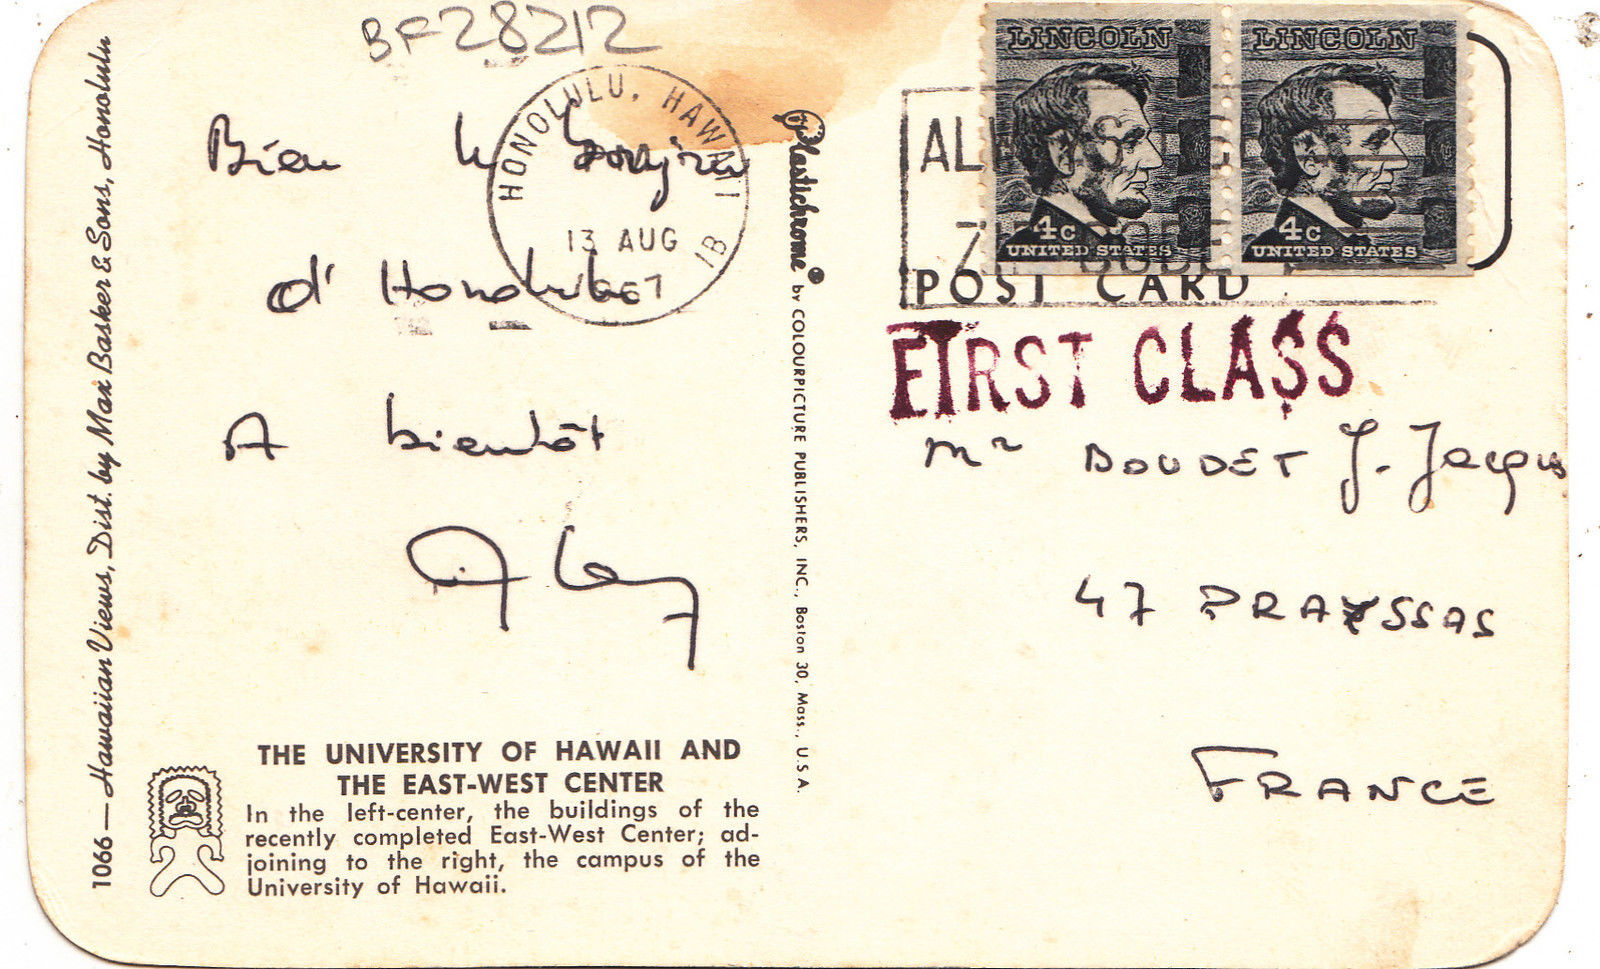 BF28212
HONOLULU, HAWAII
13 AUG
1967
1B
Bien le bonjour
d'Honolulu
A bientôt
THE UNIVERSITY OF HAWAII AND
THE EAST-WEST CENTER
In the left-center, the buildings of the
recently completed East-West Center; ad-
joining to the right, the campus of the
University of Hawaii.
1066 — Hawaiian Views, Dist. by Max Basker & Sons, Honolulu
Plastichrome® by COLOURPICTURE PUBLISHERS, INC., Boston 30, Mass., U.S.A.
LINCOLN
4c
UNITED STATES
LINCOLN
4c
UNITED STATES
POST CARD
FIRST CLASS
Mr BOUDET J. Jacques
47 PRAYSSAS
FRANCE